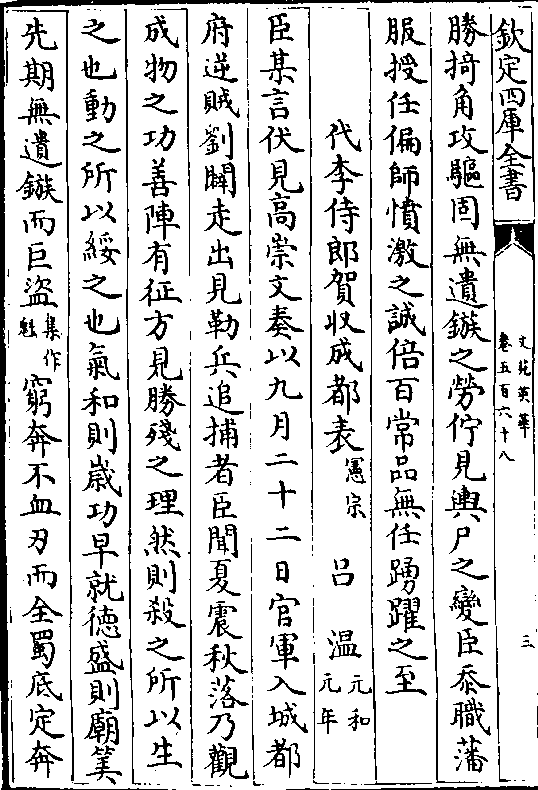 欽定四庫全書
文苑英華
卷五百六十八
三
勝掎角攻驅固無遺鏃之勞佇見輿尸之變臣忝職藩
服授任偏師憤激之誠倍百常品無任踴躍之至
代李侍郎賀收成都表憲宗 吕溫元和元年
臣某言伏見高崇文奏以九月二十二日官軍入城都
府逆賊劉闢走出見勒兵追捕者臣聞夏震秋落乃觀
成物之功善陣有征方見勝殘之理然則殺之所以生
之也動之所以綏之也氣和則歳功早就徳盛則廟筭
先期無遺鏃而巨盜集作魁窮奔不血刃而全蜀底定奔